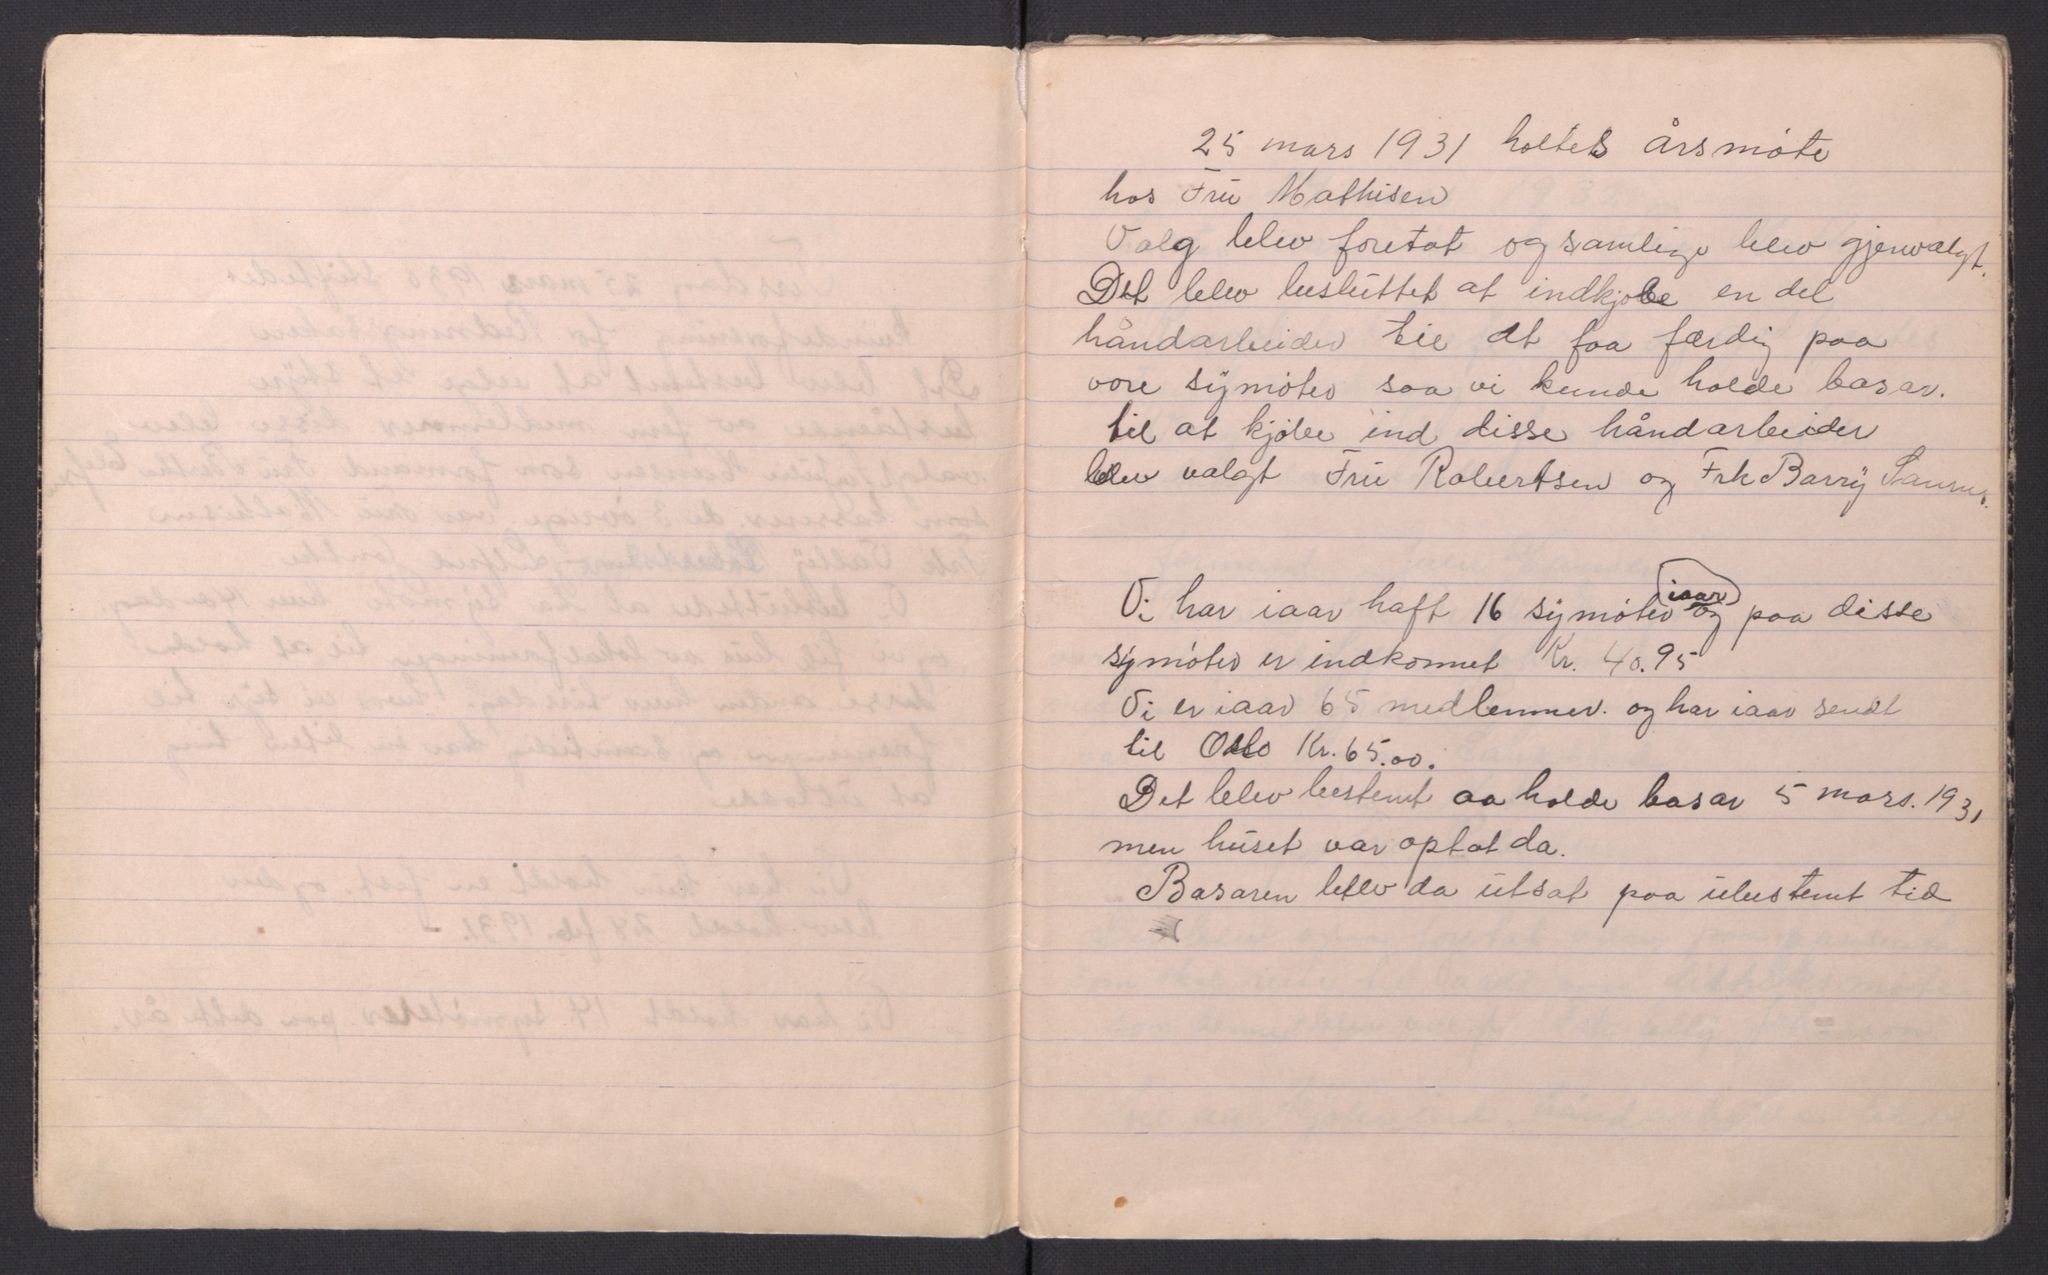 25 mars 1931 holtes årsmöte
hos Frü Mathisen
Valg blev foretat og samlige blev gjenvalgt.
Det blev beslüttet at indkjøbe en del
håndarbeider til at faa færdig paa
vore sÿmöter saa vi kunde holde basar.
til at kjöbe ind disse håndarbeider
blev valgt Frü Robertsen og Frk Barrÿ
Vi har iaar haft 16 sÿmöter iaar og paa disse
sÿmöter er indkommet Kr. 40.95
Vi er iaar 65 medlemmer. og har iaar sendt
til Oslo Kr. 65.00.
Det blev bestemt aa holde basar 5 mars. 1931
men hüset var optat da.
Basaren blev da ütsat paa übestemt tid